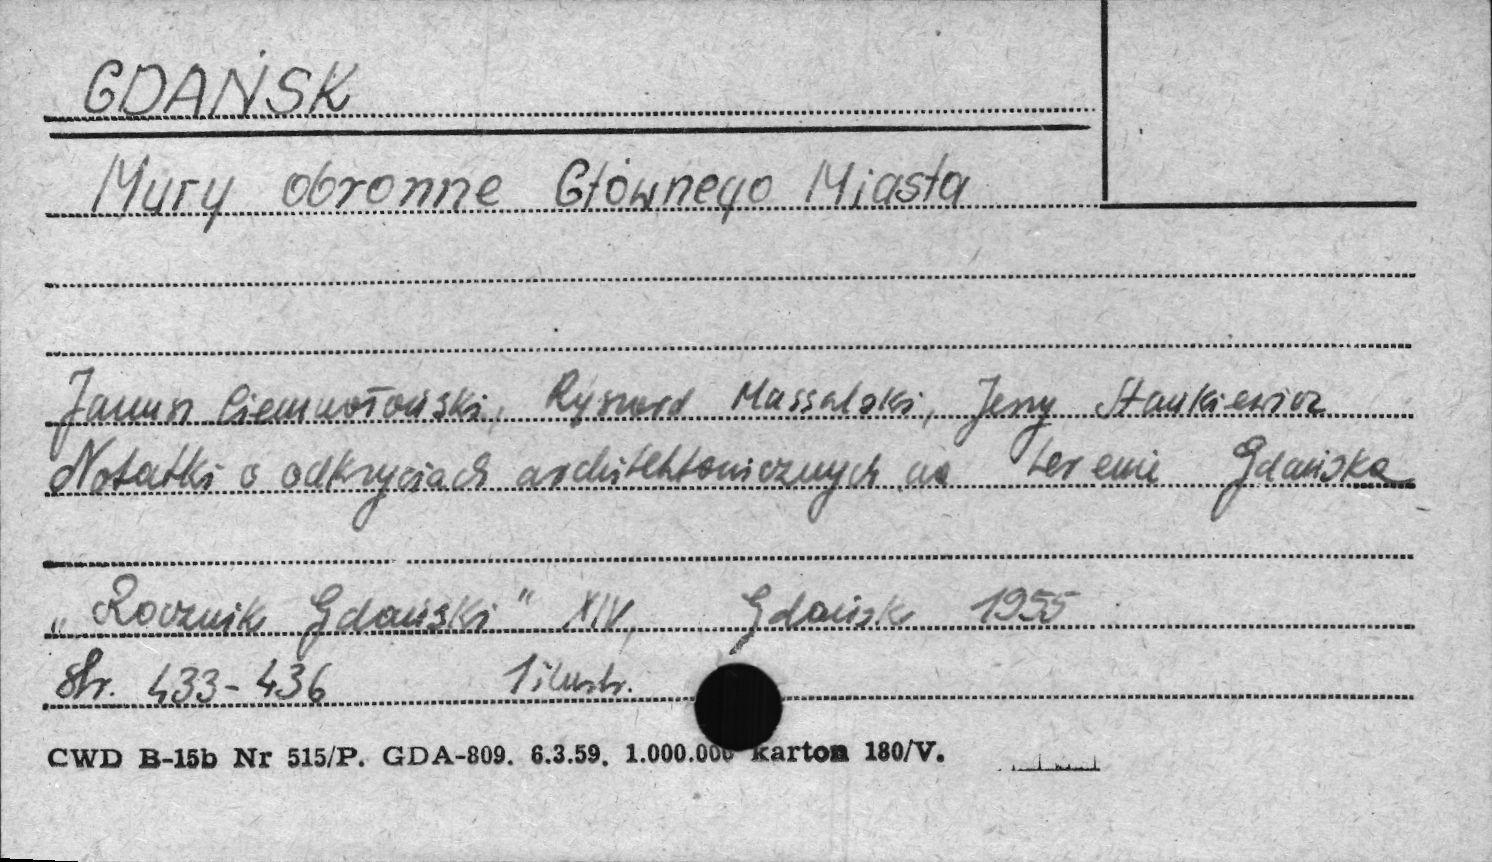 GDAŃSK
Mury obronne Głównego Miasta
Janusz Ciemnołoński, Ryszard Massalski, Jerzy Stankiewicz
Notatki o odkryciach architektonicznych na terenie Gdańska
„Rocznik Gdański" XIV, Gdańsk 1955
Str. 433-436 1 ilustr.
CWD B-15b Nr 515/P. GDA-809. 6.3.59. 1.000.000 karton 180/V.